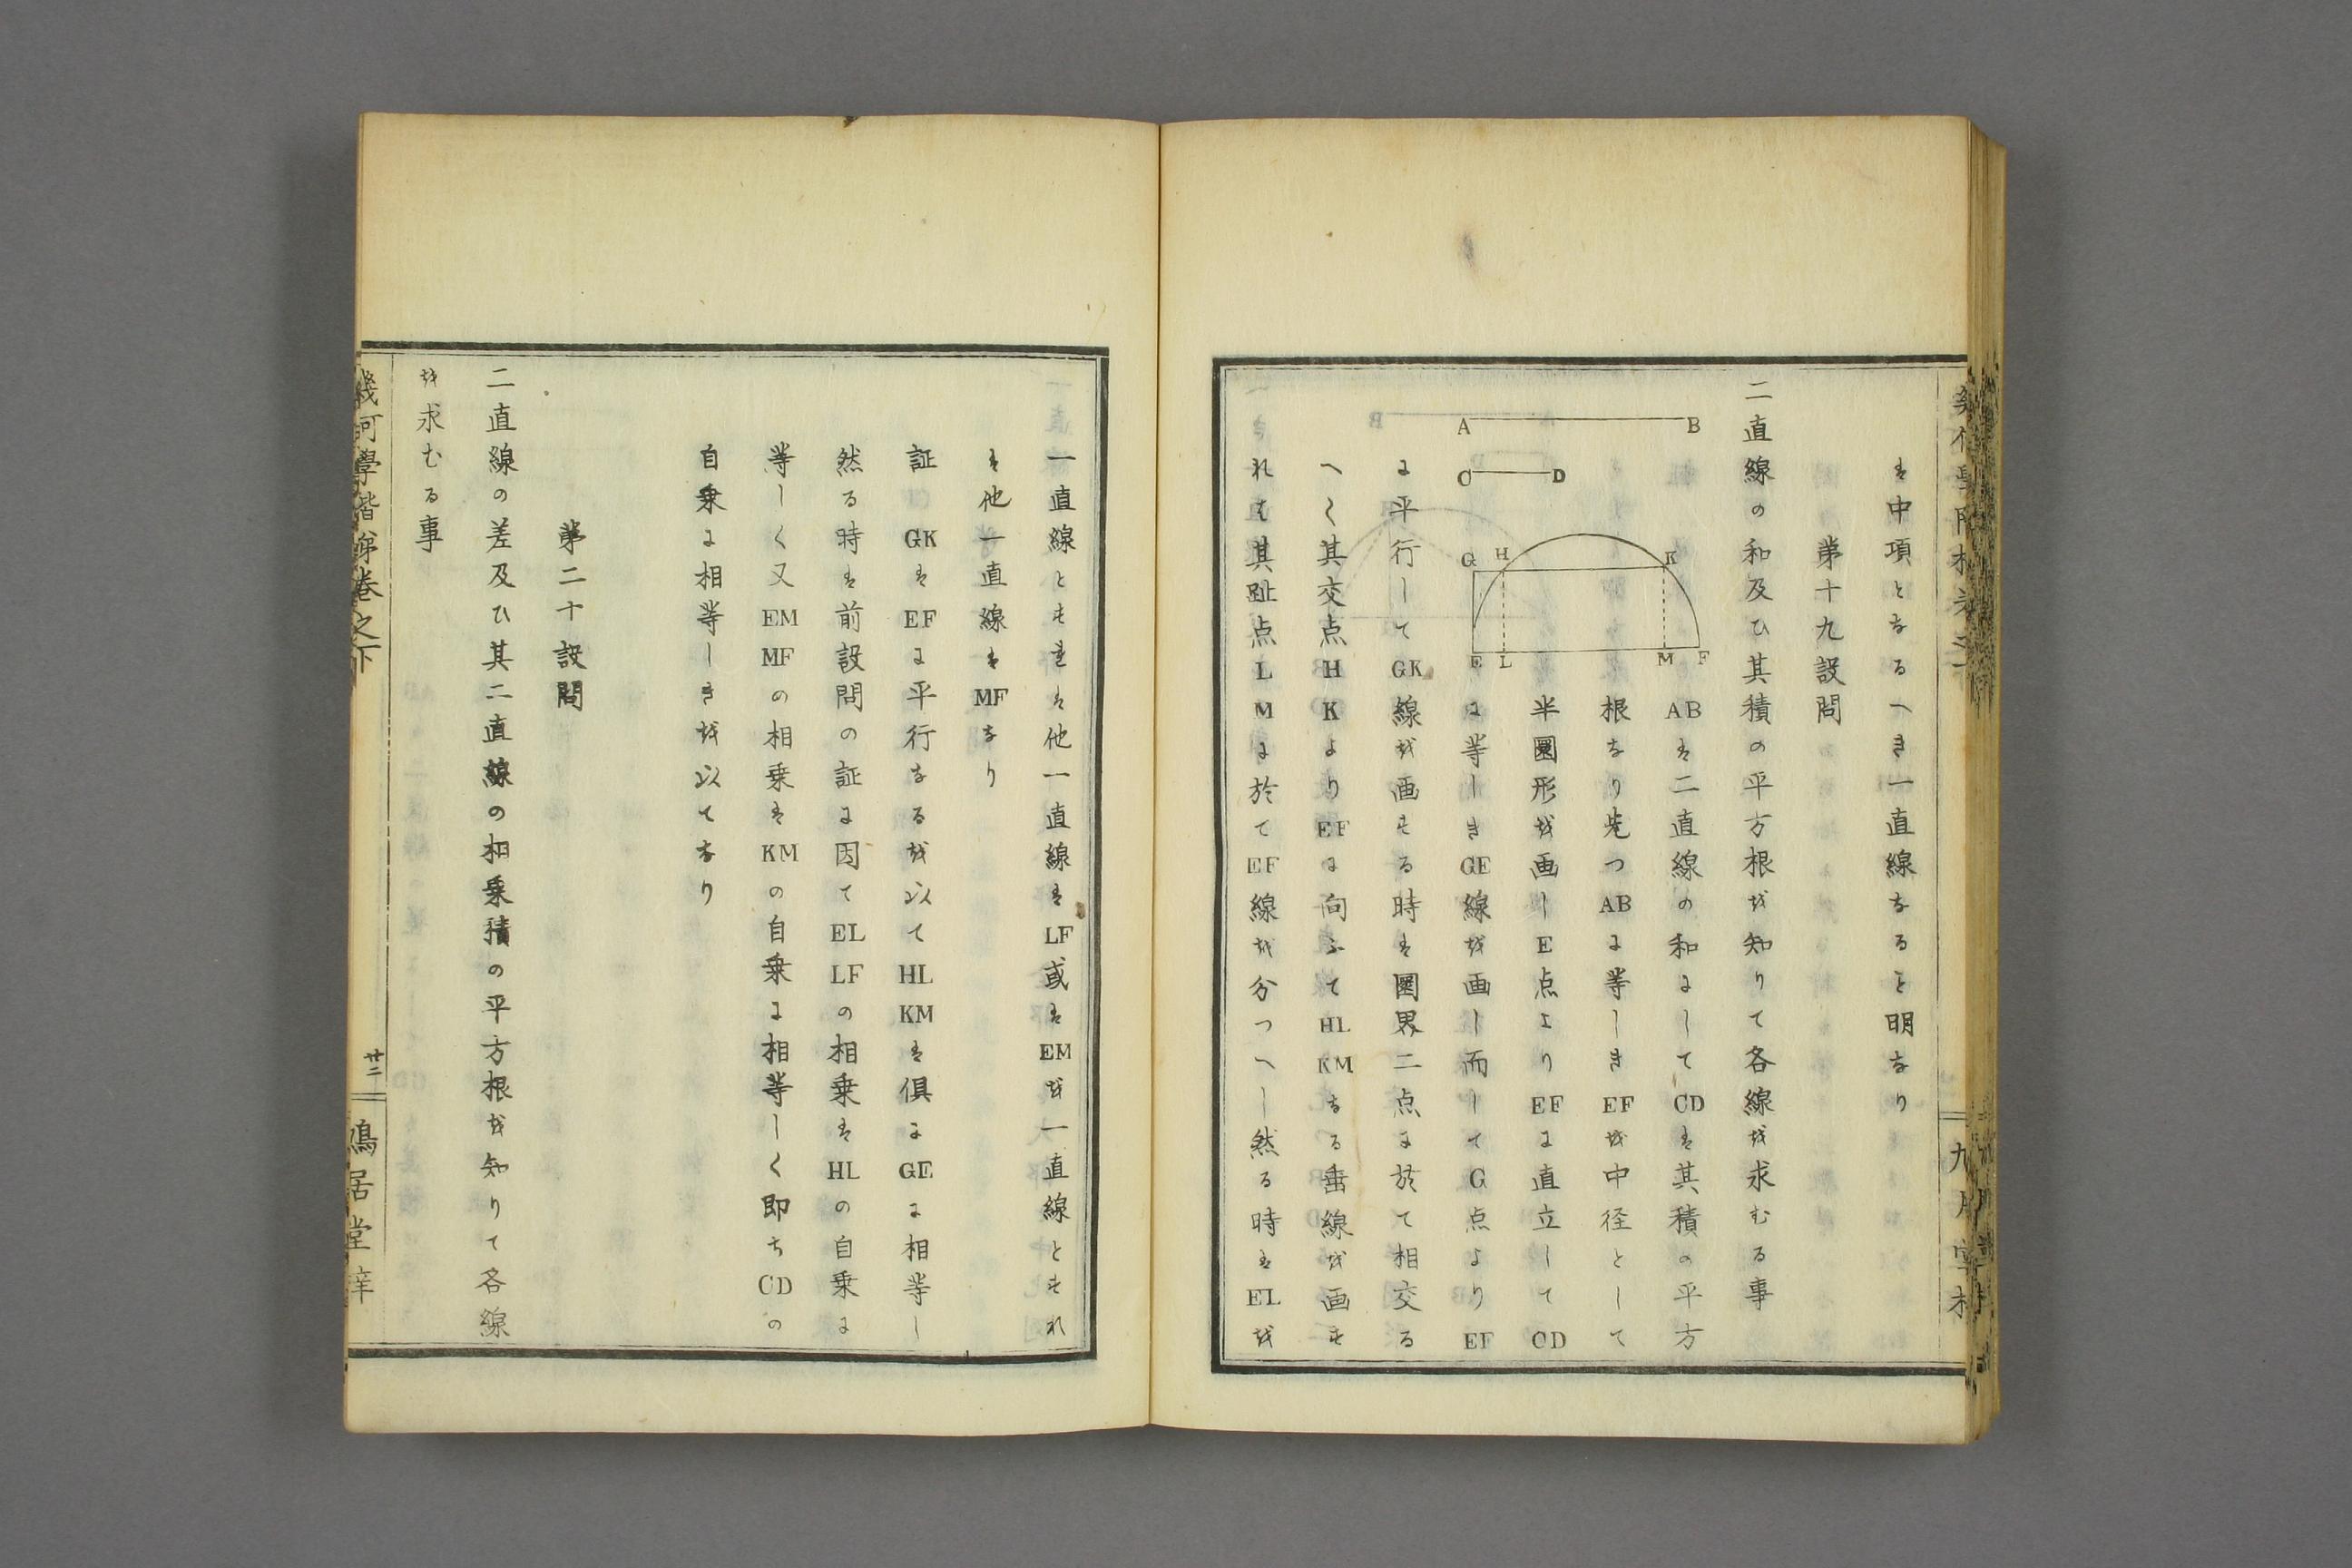 は中項となるへき一直線なること明なり
第十九設問
二直線の和及ひ其積の平方根を知りて各線を求むる事
A B
C D
G H K
E L M F
ABは二直線の和にしてCDは其積の平方
根なり先つABに等しきEFを中径として
半圜形を画しE点よりEFに直立してCD
に等しきGE線を画し而してG点よりEF
に平行してGK線を画する時は圜界二点に於て相交る
へく其交点HKよりEFに向ふてHLKMなる垂線を画す
れは其趾点LMに於てEF線を分つへし然る時はELを
一直線とすれは他一直線はLF或はEMを一直線とすれ
は他一直線はMFなり
証 GKはEFに平行なるを以てHLKMは倶にGEに相等し
然る時は前設問の証に因てELLFの相乗はHLの自乗に
等しく又EMMFの相乗はKMの自乗に相等しく即ちCDの
自乗に相等しきを以てなり
第二十設問
二直線の差及ひ其二直線の相乗積の平方根を知りて各線
を求むる事
幾何學階梯卷之下
廿二